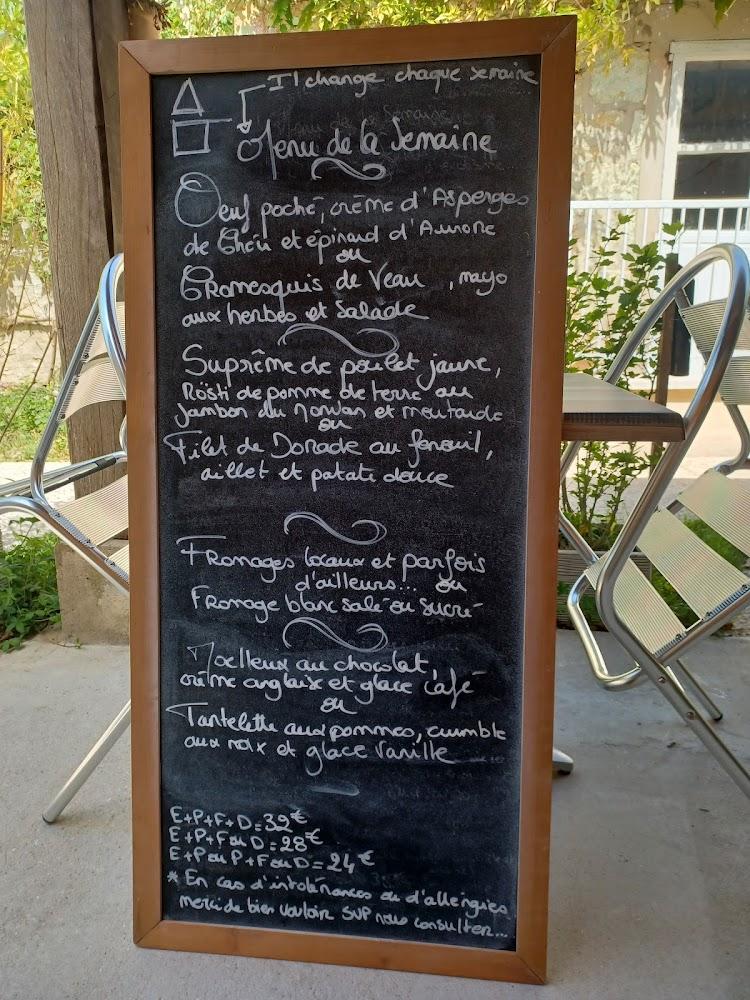 Il change chaque semaine
Menu de la Semaine
Oeuf poché, crème d'Asperges
de Chéu et épinard d'Aurore
ou
Cromesquis de Veau, mayo
aux herbes et Salade
Suprême de poulet jaune,
Rösti de pomme de terre au
Jambon du Morvan et moutarde
ou
Filet de Dorade au fenouil,
aillet et patate douce
Fromages locaux et parfois
d'ailleurs... ou
Fromage blanc salé ou sucré
Moelleux au chocolat,
crème anglaise et glace café
ou
Tartelette aux pommes, crumble
aux noix et glace Vanille
E+P+F+D = 32€
E+P+F ou D = 28€
E+P ou P+F ou D = 24€
* En cas d'intolérances ou d'allergies
merci de bien vouloir SVP nous consulter...